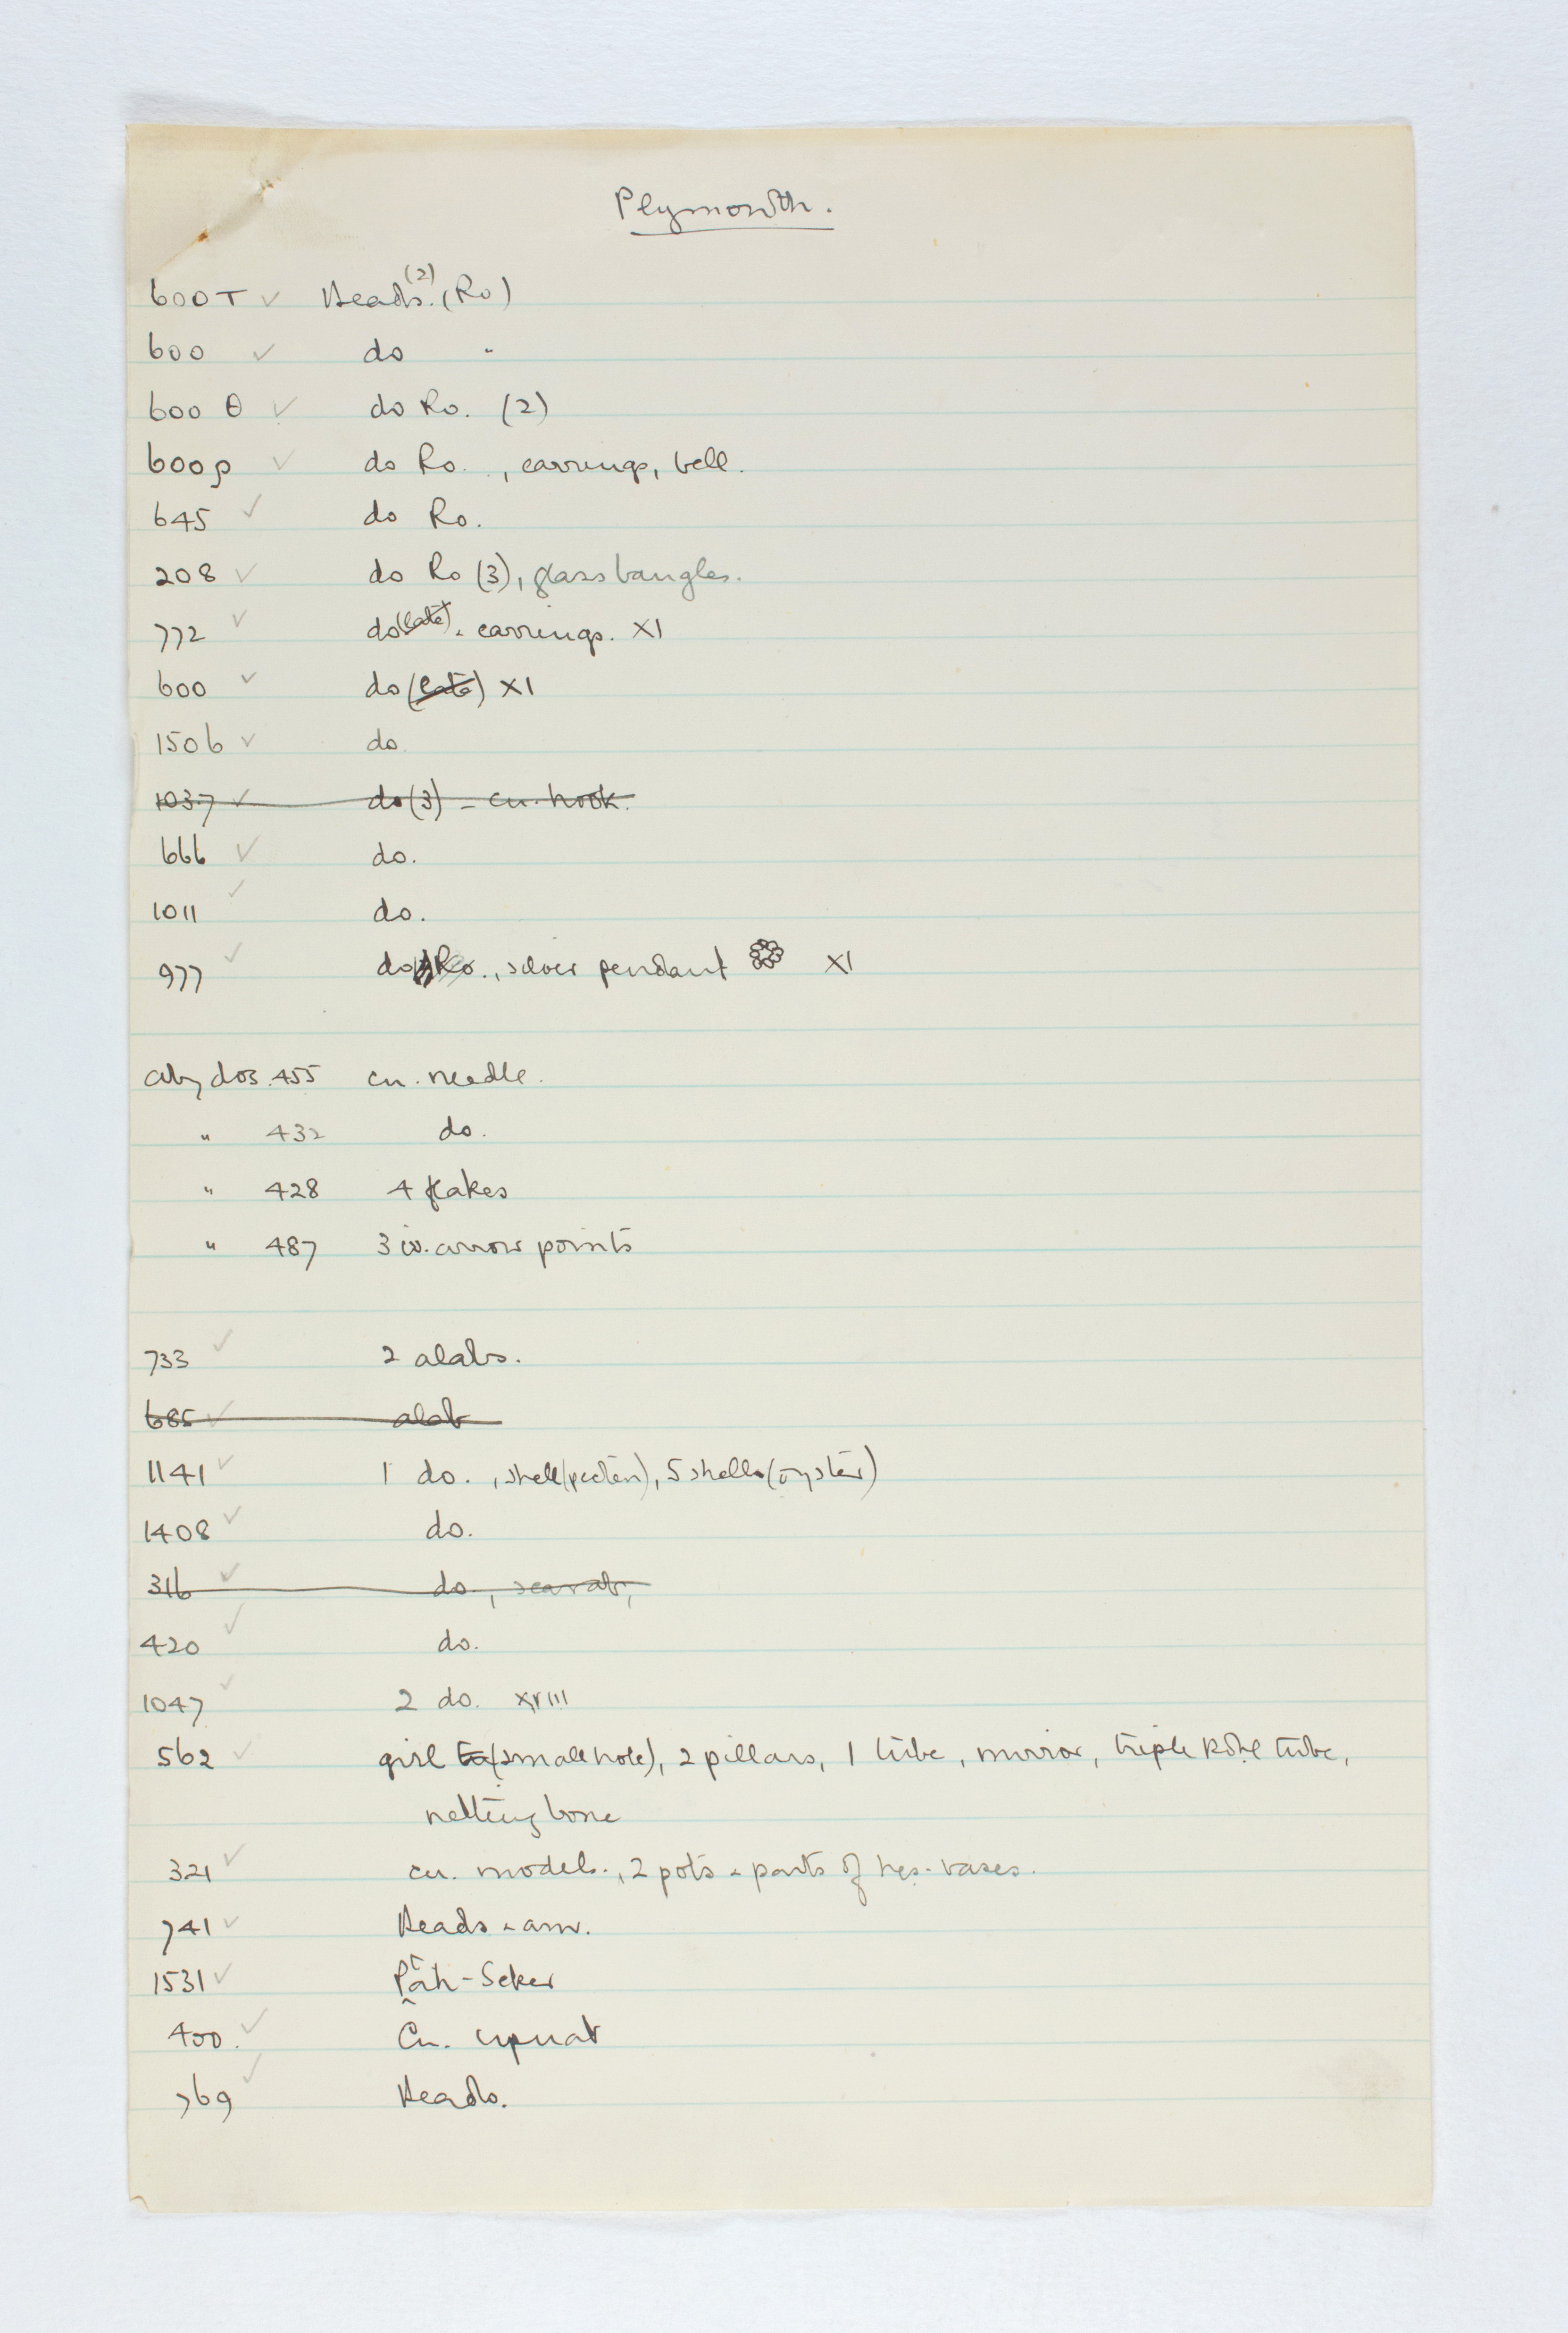 Plymouth.
600 T ✓ Beads (2). (Ro)
600 ✓ do "
600 θ ✓ do Ro. (2)
600 ρ ✓ do Ro. , earrings, bell.
645 ✓ do Ro.
208 ✓ do Ro (3), glass bangles.
772 ✓ do (late) . earrings. XI
600 ✓ do (late) XI
1506 ✓ do
1037 ✓ do (3) - cu. hook.
666 ✓ do.
1011 ✓ do.
977 ✓ do Ro., silver pendant XI
Abydos. 455 cu. needle.
" 432 do.
" 428 4 flakes
" 487 3 iv. arrow points
733 ✓ 2 alabs.
685 ✓ alab
1141 ✓ 1 do. , shell (pecten), 5 shells (oyster)
1408 ✓ do.
316 ✓ do , scarab,
420 ✓ do.
1047 ✓ 2 do. XVIII
562 ✓ girl (small hole), 2 pillars, 1 tube, mirror, triple kohl tube,
netting bone
321 ✓ cu. models., 2 pots - parts of hes-vases.
741 ✓ Beads - am.
1531 ✓ Ptah-Seker
400. ✓ Cu. upuat
769 ✓ Beads.